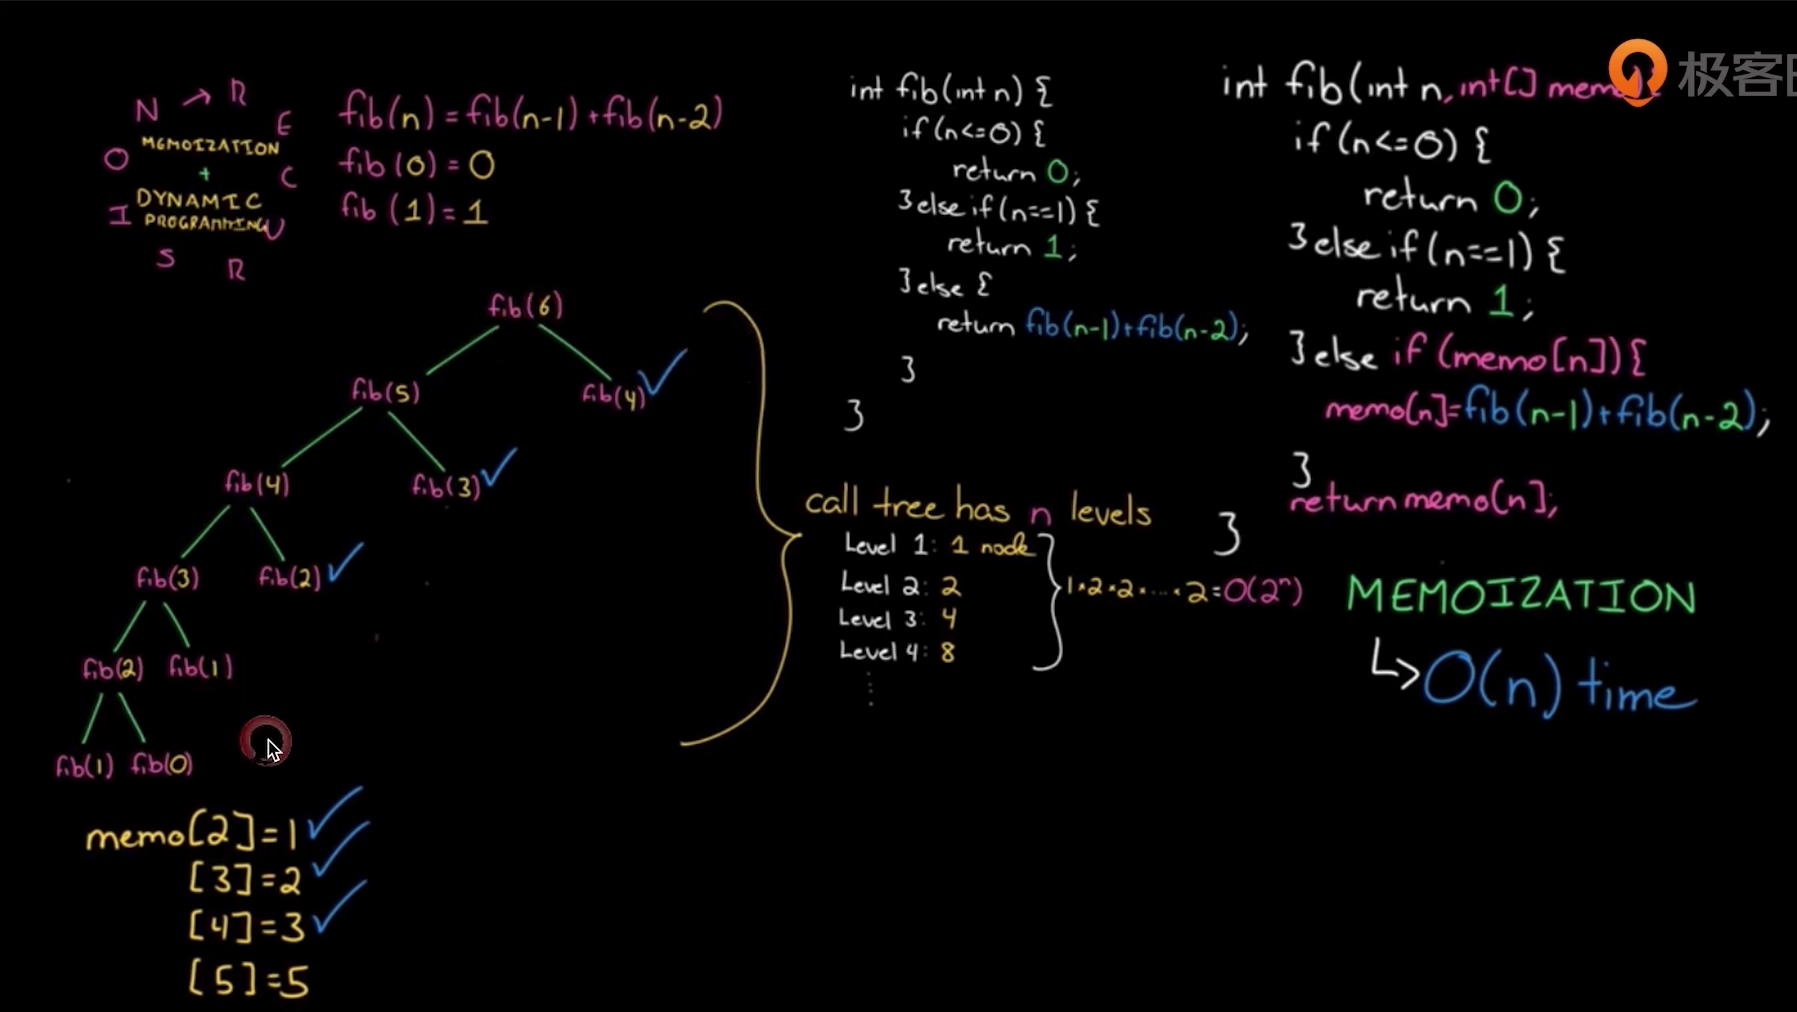 N → R
E
C
U
R
S
I
O
MEMOIZATION
+
DYNAMIC
PROGRAMMING
fib(n) = fib(n-1) + fib(n-2)
fib(0) = 0
fib(1) = 1
fib(6)
fib(5) fib(4)
fib(4) fib(3)
fib(3) fib(2)
fib(2) fib(1)
fib(1) fib(0)
memo[2]=1
[3]=2
[4]=3
[5]=5
int fib(int n) {
if (n<=0) {
return 0;
}else if (n==1) {
return 1;
}else {
return fib(n-1)+fib(n-2);
}
}
call tree has n levels
Level 1: 1 node
Level 2: 2
Level 3: 4
Level 4: 8
1*2*2*...*2=O(2ⁿ)
int fib(int n, int[] mem
if (n<=0) {
return 0;
}else if (n==1) {
return 1;
}else if (memo[n]) {
memo[n]=fib(n-1)+fib(n-2);
}
return memo[n];
}
MEMOIZATION
↳O(n) time
极客